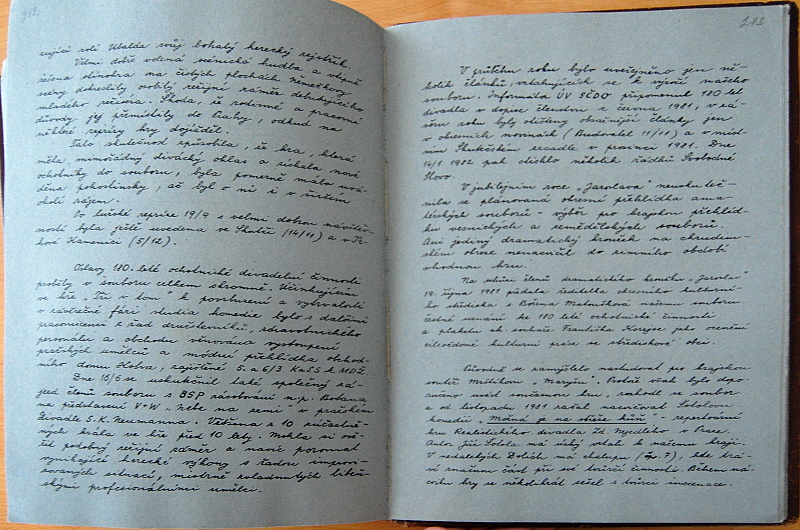 292
zující roli Ubalda svůj bohatý herecký rejstřík.
Velmi dobře volená scénická hudba a vtipně
řešena stínohra na čistých plochách
scény dokreslily osobitý režijní záměr debutujícího
mladého režiséra. Škoda, že rodinné a pracovní
důvody jej přemístily do Prahy, odkud na
některé reprízy hry dojížděl.
Tato skutečnost způsobila, že hra, která
měla mimořádný divácký ohlas a získala nové
ochotníky do souboru, byla poměrně málo uvá-
děna pohostinsky, ač byl o ni i v širším
okolí zájem.
Po lužské repríze 19/9 s velmi dobrou návštěv-
ností byla ještě uvedena ve Skutči (14/11) a v Tr-
hové Kamenici (5/12).
Oslavy 180. leté ochotnické divadelní činnosti
proběhly v souboru celkem skromně. Účinkujícím
ve hře "Tři v tom" k povzbuzení a vytrvalosti
v závěrečné fázi studia komedie bylo s dalšími
pracovnicemi z řad družstevníků, zdravotnického
personálu a obchodu věnováno vystoupení
pražských umělců a módní přehlídka obchod-
ního domu Kotva, zajištěné 5. a 6/3 KaSS k MDŽ.
Dne 16/5 se uskutečnil také společný zá-
jezd členů souboru s BSP n.p. Botana
na představení V+W "Nebe na zemi" v pražském
Divadle S.K. Neumanna. Většina z 10 zúčastně-
ných hrála ve hře před 10 lety. Mohla si ově-
řit podobný režijní záměr a navíc porovnat
vynikající herecké výkony s řadou improvi-
zovaných situací, mistrně zvládnutých libeň-
skými profesionálními umělci.
293
V průběhu roku bylo uveřejněno jen ně-
kolik článků, vztahujících se k výročí našeho
souboru. Informátor ÚV SČDO připomenul 180 let
divadla v dopise členstvu z června 1981, v zá-
věru roku byly otištěny obsáhlejší články jen
v okresních novinách (Budovatel 11/11) a v míst-
ním Skutečském zrcadle v prosinci 1981. Dne
14/1 1982 pak otisklo několik řádků Svobodné
Slovo.
V jubilejním roce "Jaroslava" neuskuteč-
nila se plánovaná okresní přehlídka ama-
térských souborů - výběr pro krajskou přehlíd-
ku vesnických a zemědělských souborů.
Ani jediný dramatický kroužek na chrudim-
ském okrese nenacvičil do zimního období
vhodnou hru.
Na schůzi členů dramatického kroužku "Jaroslav"
19. října 1981 předala ředitelka okresního kulturní-
ho střediska s. Božena Matoušková našemu souboru
čestné uznání ke 180 leté ochotnické činnosti
a plaketu ak. sochaře Františka Korejse jako ocenění
cílevědomé kulturní práce ve střediskové obci.
Původně se zamýšlelo nastudovat pro krajskou
soutěž Mrštíkovu "Maryšu". Protože však bylo dopo-
ručeno uvést současnou hru, rozhodl se soubor
a od listopadu 1981 začal nacvičovat Sotolovu
komedii "Možná je na střeše kůň" z repertoáru
hru Realistického divadla Zd. Nejedlého v Praze.
Autor Jiří Šotola má úzký vztah k našemu kraji.
V nedalekých Dolích má chalupu (čp. 7), kde trá-
ví značnou část při své tvůrčí činnosti. Během ná-
cviku hry se několikrát sešel s tvůrci inscenace.